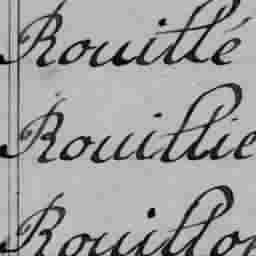 Rouillé
Rouillie
Rouillon